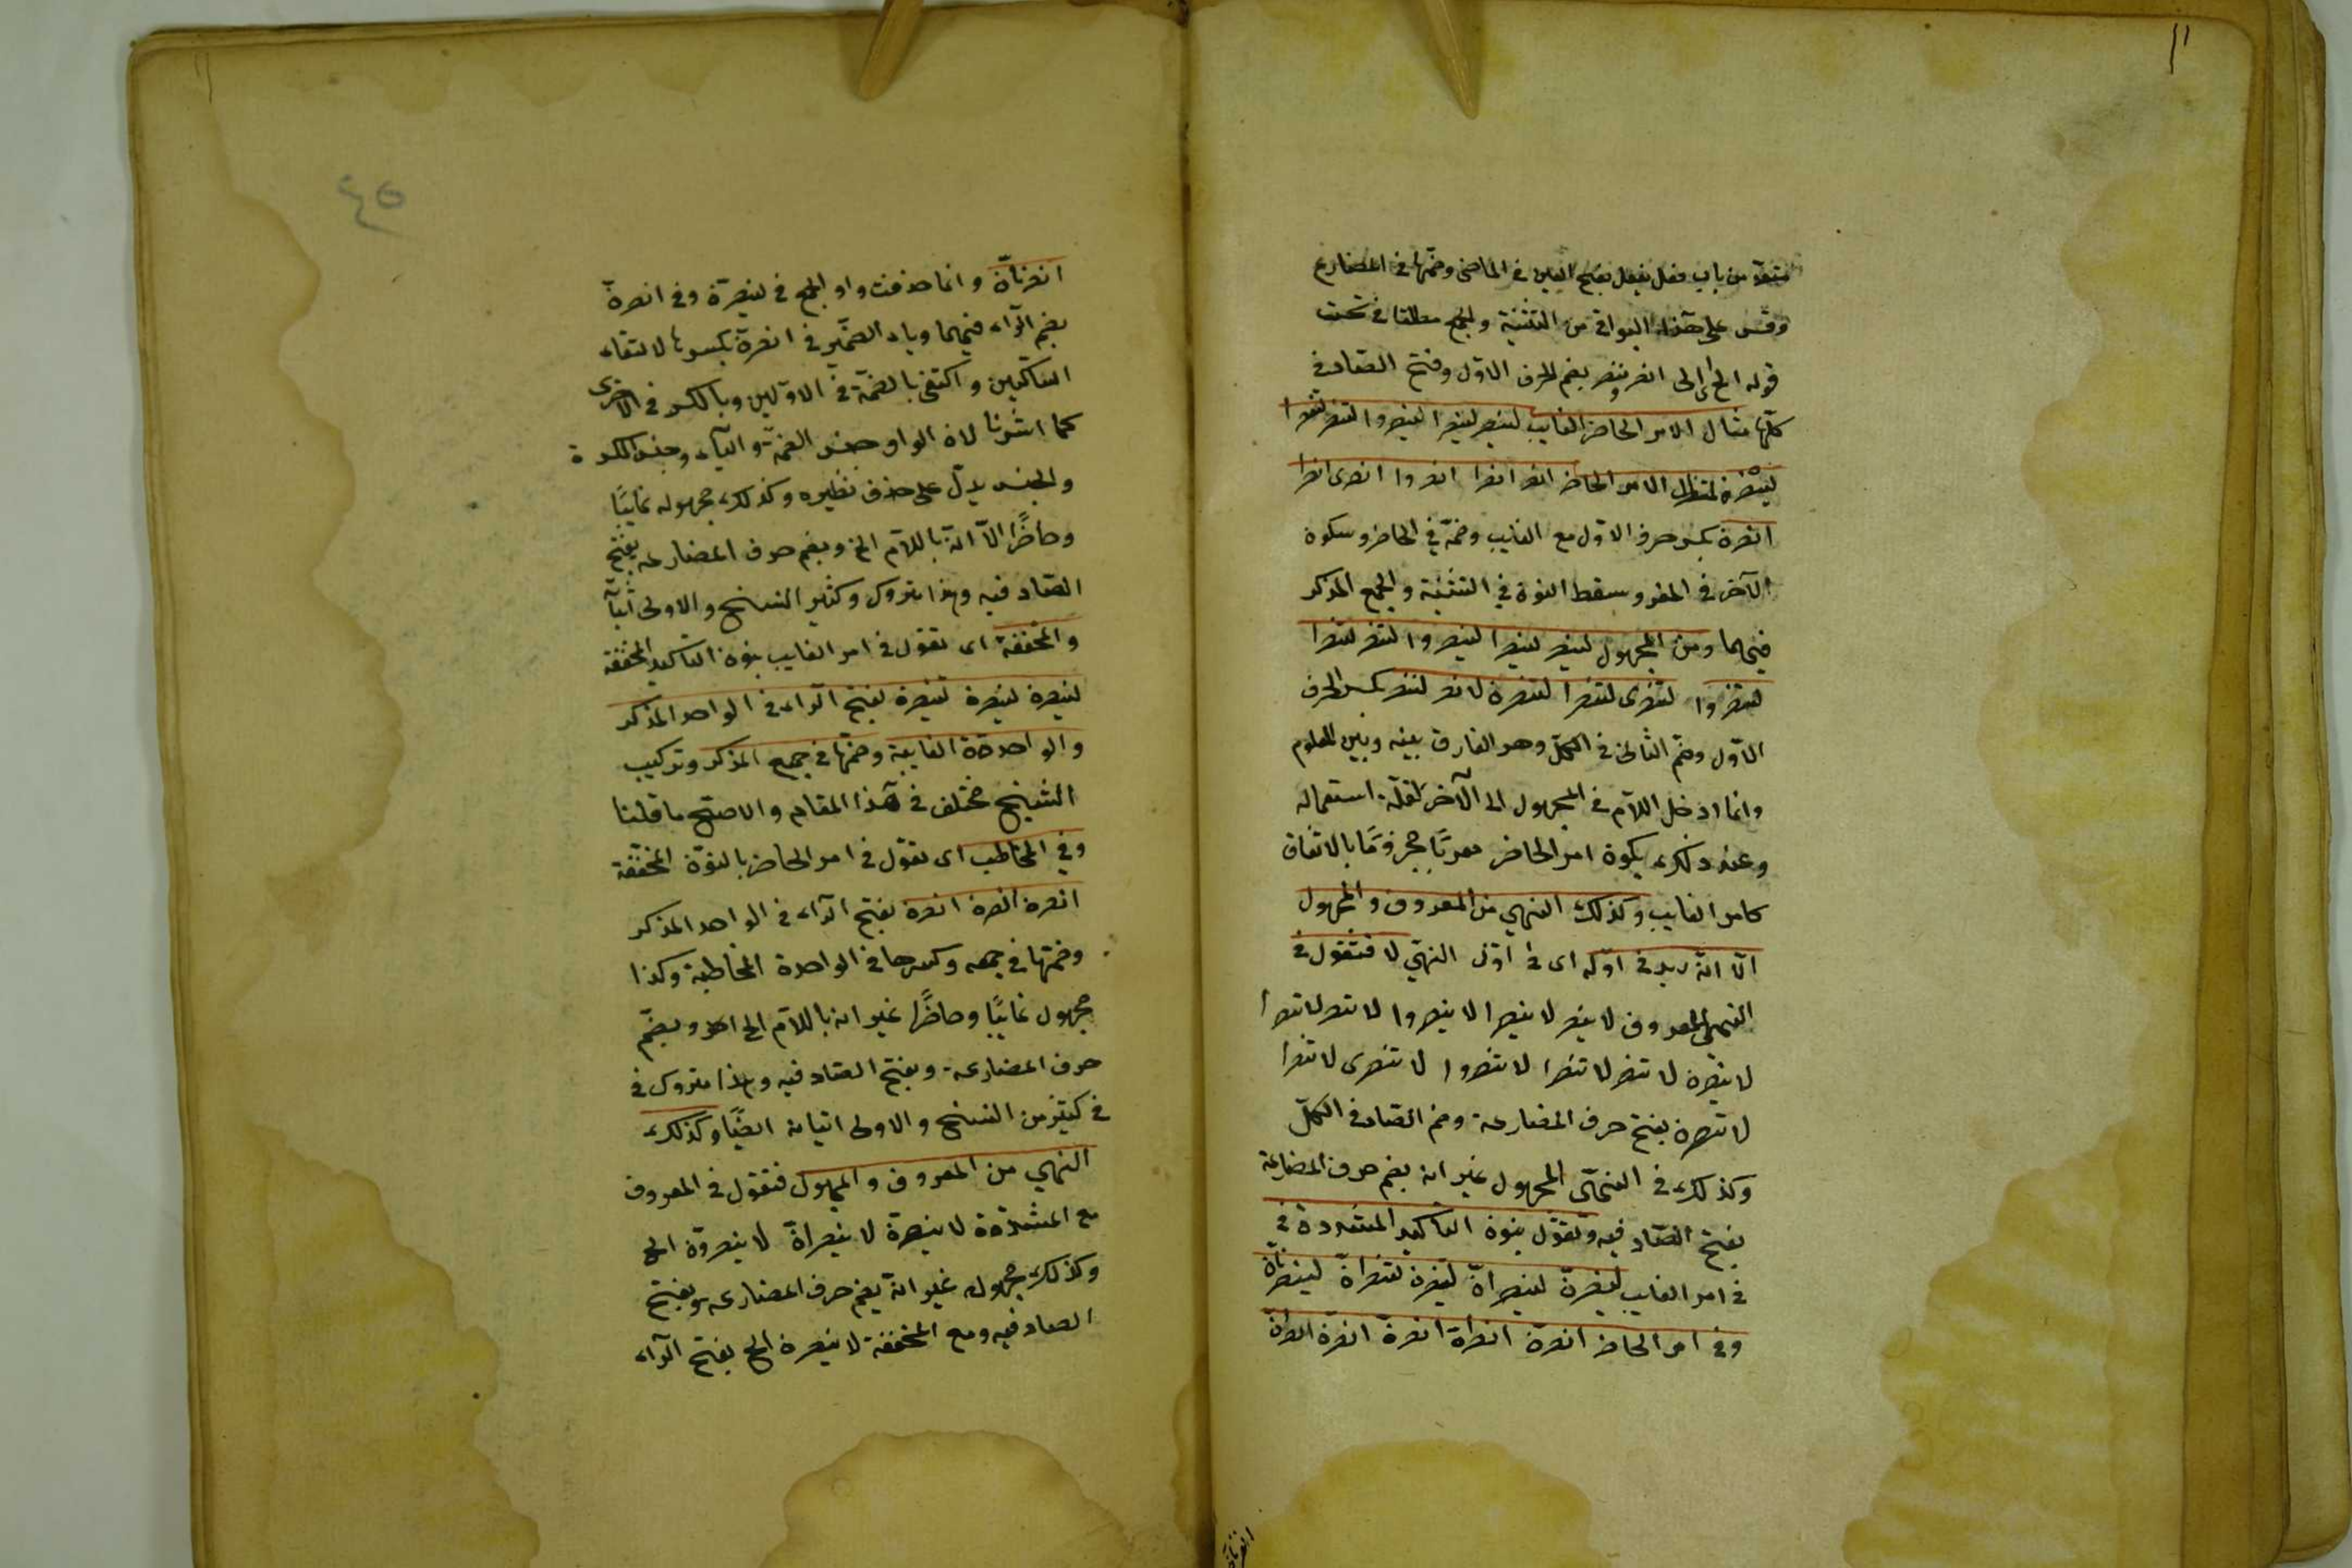 متعد من باب فعل يفعل بفتح العين في الماضي وضمها في المضارع
وقس على هذا البواقي من التثنية والجمع مطلقا في تحت
قوله الخ اى الى انصر وننصر بضم الحرف الاول وفتح الصاد في
كلها مثال الامر الحاضر الغايب لينصر لينصرا لينصروا لتنصر لتنصرا
لينصرن الامر الحاضر انصر انصرا انصروا انصرى انصرا
انصرن بكسر حرف الاول مع الغايب وضمه في الحاضر وسكون
الآخر في المفرد وسقط النون في التثنية والجمع المذكر
فيهما ومن المجهول لينصر لينصرا لينصروا لتنصر لتنصرا
لتنصروا لتنصرى لتنصرا لتنصرن لانصر لننصر بكسر الحرف
الاول وضم الثاني في الكل وهو الفارق بينه وبين المعلوم
وانما ادخل اللام في المجهول الى الآخر لقلة استعماله
وعند ذلك يكون امر الحاضر معربًا مجزومًا بالاتفاق
كامر الغايب وكذلك النهي من المعروف والمجهول
الا انه زيد في اوله اى في اول النهي لا فتقول في
النهي المعروف لا ينصر لا ينصرا لا ينصروا لا تنصر لا تنصرا
لا ينصرن لا تنصر لا تنصرا لا تنصروا لا تنصرى لا تنصرا
لا تنصرن بفتح حرف المضارعة وضم الصاد في الكل
وكذلك في النهى المجهول غير انه بضم حرف المضارعة
بفتح الصاد فيه وتقول بنون التأكيد المشددة في
في امر الغايب لينصرن لينصران لينصرن لتنصران لينصرنان
وفي امر الحاضر انصرن انصران انصرن انصرن انصران
انصرنان
انصرنان وانما حذفت واو الجمع في لينصرن وفي انصرن
بضم الراء فيهما وياء الضمير في انصرن بكسرها لالتقاء
الساكنين واكتفى بالضمة في الاولين وبالكسر في الاخرى
كما اشرنا لان الواو جنس الضمة والياء وجنس الكسرة
والجنس يدل على حذف نظيره وكذلك مجهوله غايبًا
وحاضرًا الا انه باللام الخ وبضم حرف المضارعه بفتح
الصاد فيه وهذا متروك وكثير النسخ والاولى اثباته
والمخففة اى تقول في امر الغايب بنون التأكيد المخففة
لينصرن لينصرن لتنصرن بفتح الراء في الواحد المذكر
والواحدة الغايبة وضمها في جمع المذكر وتركيب
الشيخ مختلف في هذا المقام والاصح ما قلنا
وفي المخاطب اى تقول في امر الحاضر بالنون المخففة
انصرن انصرن انصرن بفتح الراء في الواحد المذكر
وضمها في جمعه وكسرها في الواحدة المخاطبة وكذا
مجهول غايبًا وحاضرًا غير انه باللام الى احد وبضم
حرف المضارعة وبفتح الصاد فيه وهذا متروك في
في كثير من النسخ والاولى اتيانه ايضًا وكذلك
النهي من المعروف والمجهول فتقول في المعروف
مع المشددة لا ينصرن لا ينصران لا ينصرون الخ
وكذلك مجهوله غير انه بضم حرف المضارعه وبفتح
الصاد فيه ومع المخففة لا ينصرن الخ بفتح الراء
٤٥